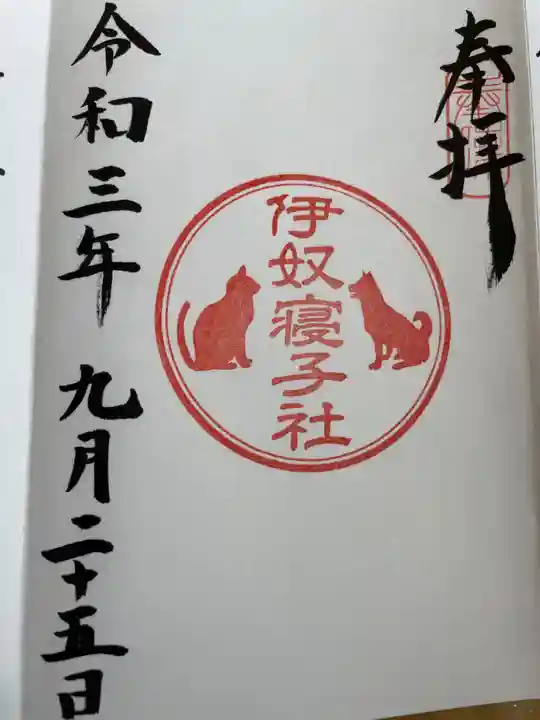 奉拝
伊奴寝子社
令和三年 九月二十五日